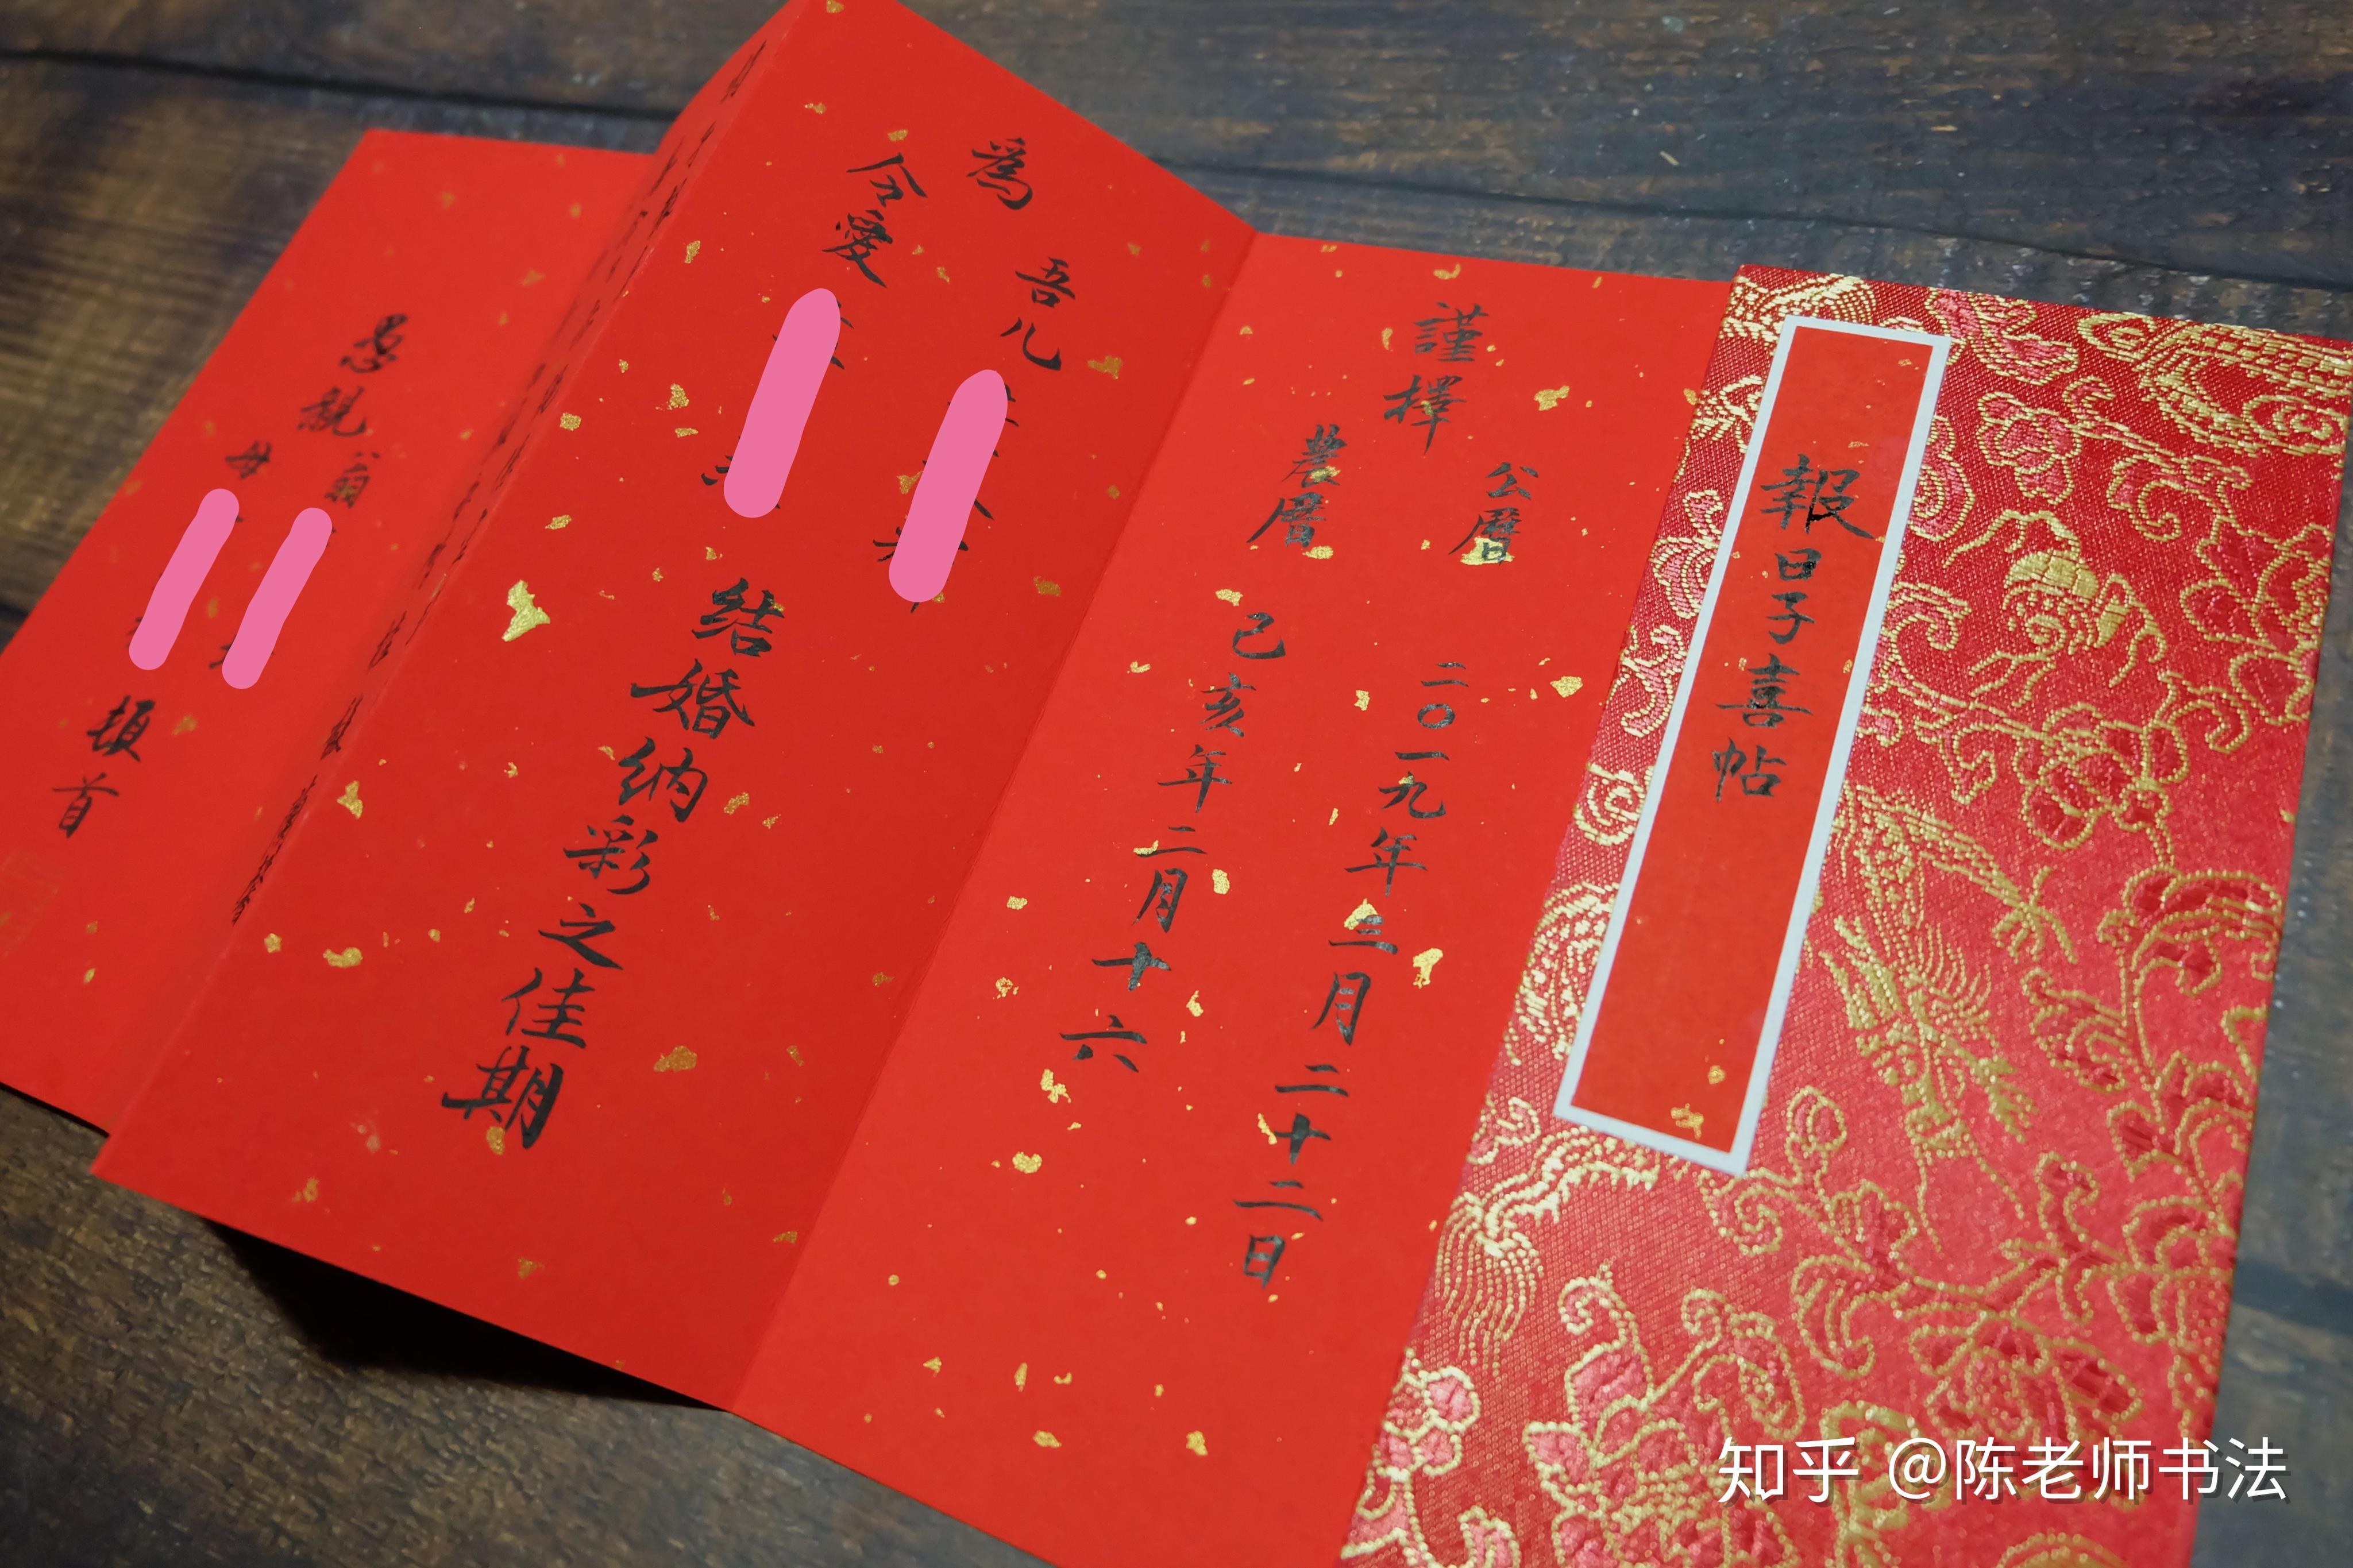 報日子喜帖
謹擇
公曆 二〇一九年三月二十二日
農曆 己亥年二月十六
為 吾儿
令愛
结婚纳彩之佳期
愚親
翁
母
頓首
知乎 @陈老师书法